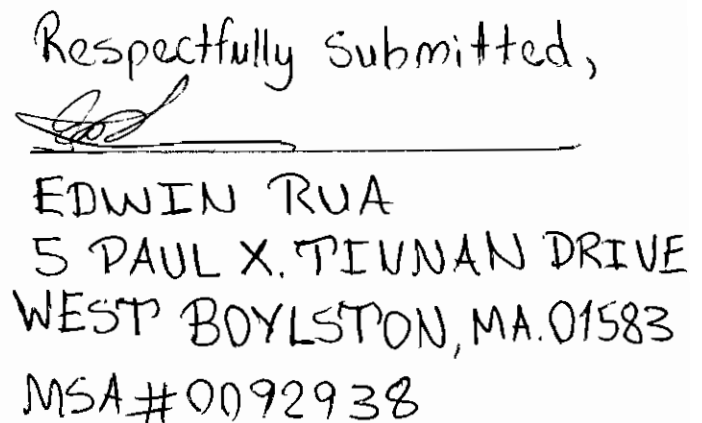 Respectfully Submitted,
EDWIN RUA
5 PAUL X. TIVNAN DRIVE
WEST BOYLSTON, MA. 01583
MSA#0092938